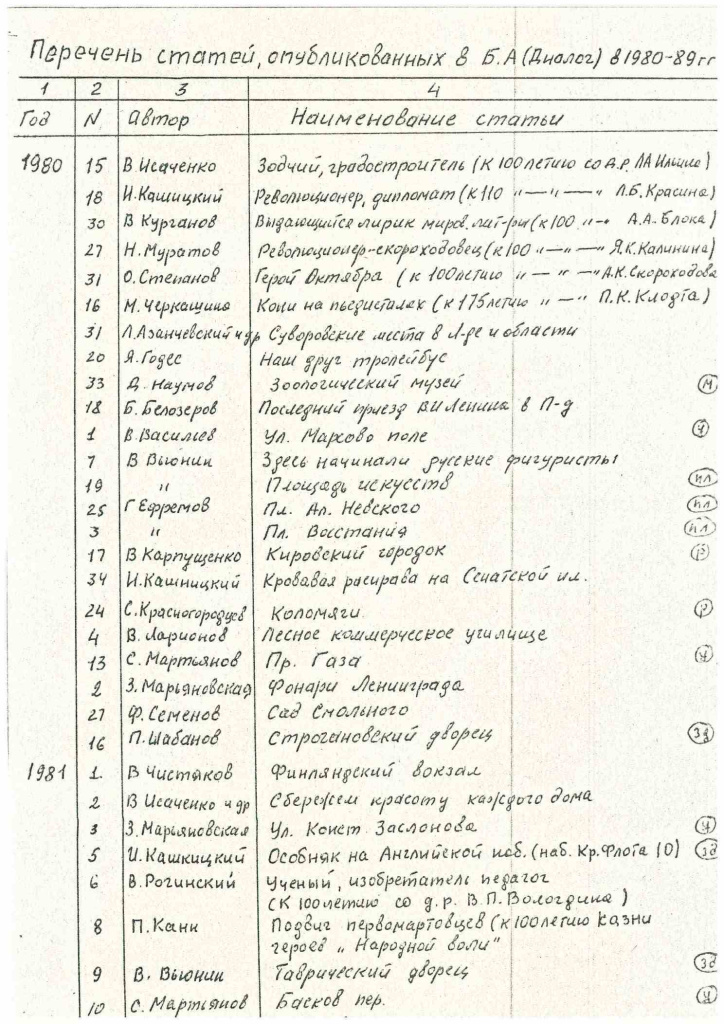 Перечень статей, опубликованных в Б.А (Диалог) в 1980-89гг
1 2 3 4
Год N Автор Наименование статьи
1980 15 В.Исаченко Зодчий, градостроитель (к 100летию со д.р. ЛА Ильина)
18 И.Кашицкий Революционер, дипломат (к 110 „ — „ — „ Л.Б.Красина)
30 В Курганов Выдающийся лирик миров. лит-ры (к 100 „ — „ А.А.Блока)
27 Н.Муратов Революционер-скороходовец (к 100 „ — „ — „ Я.К.Калинина)
31 О.Степанов Герой Октября (к 100летию „ — „ — „ А.К.Скороходова
16 М.Черкашина Кони на пьедисталах (к 175летию „ — „ П.К.Клодта)
31 Л.Азанчевский и др Суворовские места в Л-де и области
20 Я.Годес Наш друг тролейбус
33 Д.Наумов Зоологический музей М
18 Б.Белозеров Последний приезд ВИ Ленина в П-д
1 В.Васильев Ул. Марсово поле У
7 В Вьюнин Здесь начинали русские фигуристы
19 „ Площадь искусств пл
25 Г Ефремов Пл. Ал. Невского пл
3 „ Пл. Восстания пл
17 В Карпущенко Кировский городок р
34 И.Кашницкий Кровавая расправа на Сенатской пл.
24 С.Красногородцев Коломяги р
4 В.Ларионов Лесное коммерческое училище
13 С.Мартьянов Пр. Газа У
2 З.Марьяновская Фонари Ленинграда
27 Ф.Семенов Сад Смольного
16 П.Шабанов Строгановский дворец Зд
1981 1. В Чистяков Финляндский вокзал
2 В Исаченко и др Сбережем красоту каждого дома
3 З.Марьяновская Ул. Конст Заслонова У
5 И.Кашкицкий Особняк на Английской наб. (наб. Кр.Флота 10) Зд
6 В.Рогинский Ученый, изобретатель педагог
(К 100летию со д.р. В.П.Вологдина)
8 П.Канн Подвиг первомартовцев (к 100летию казни
героев „Народной воли"
9 В. Вьюнин Таврический дворец Зд
10 С.Мартьянов Басков пер. У